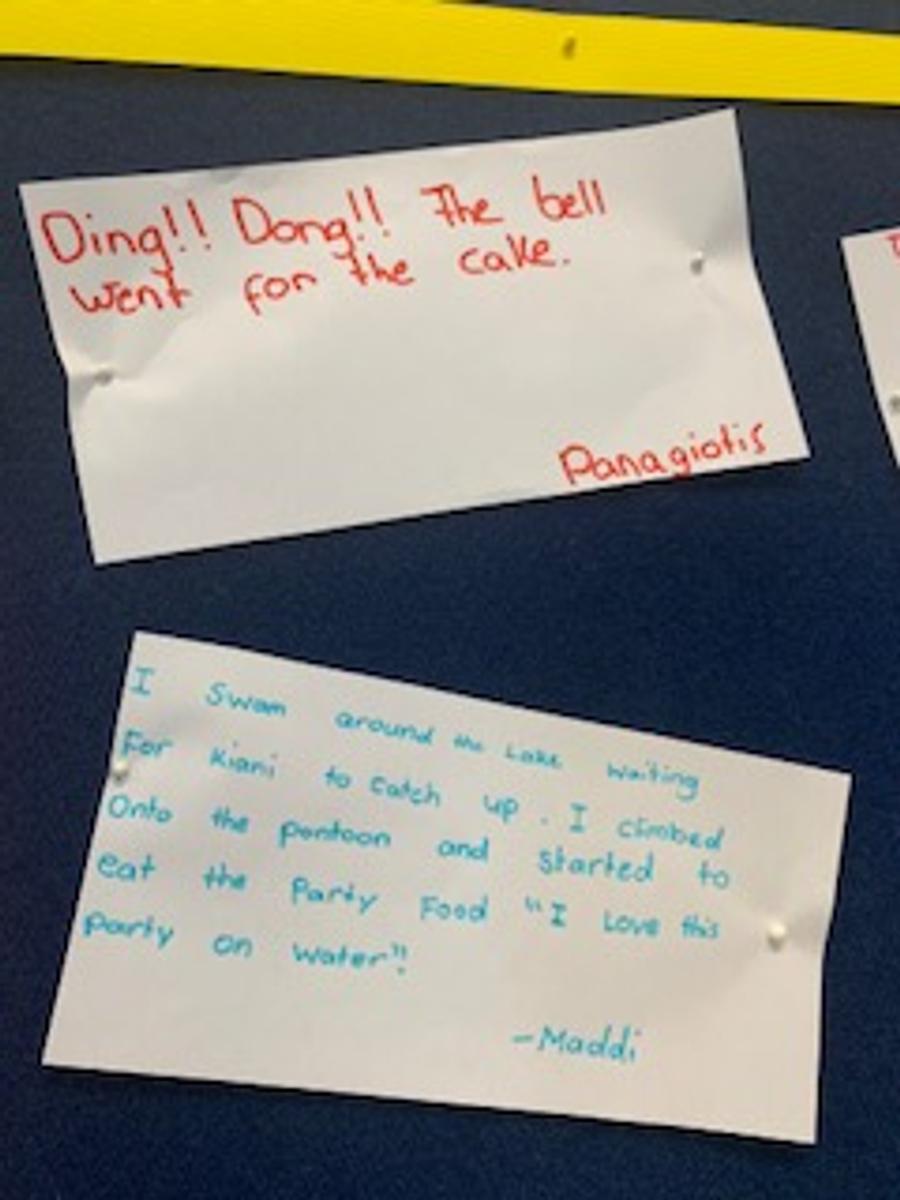 Ding!! Dong!! The bell
went for the cake.
Panagiotis
I Swam around the Lake waiting
For Kiani to catch up. I climbed
Onto the pontoon and started to
eat the Party Food "I Love this
party on water"!
-Maddi